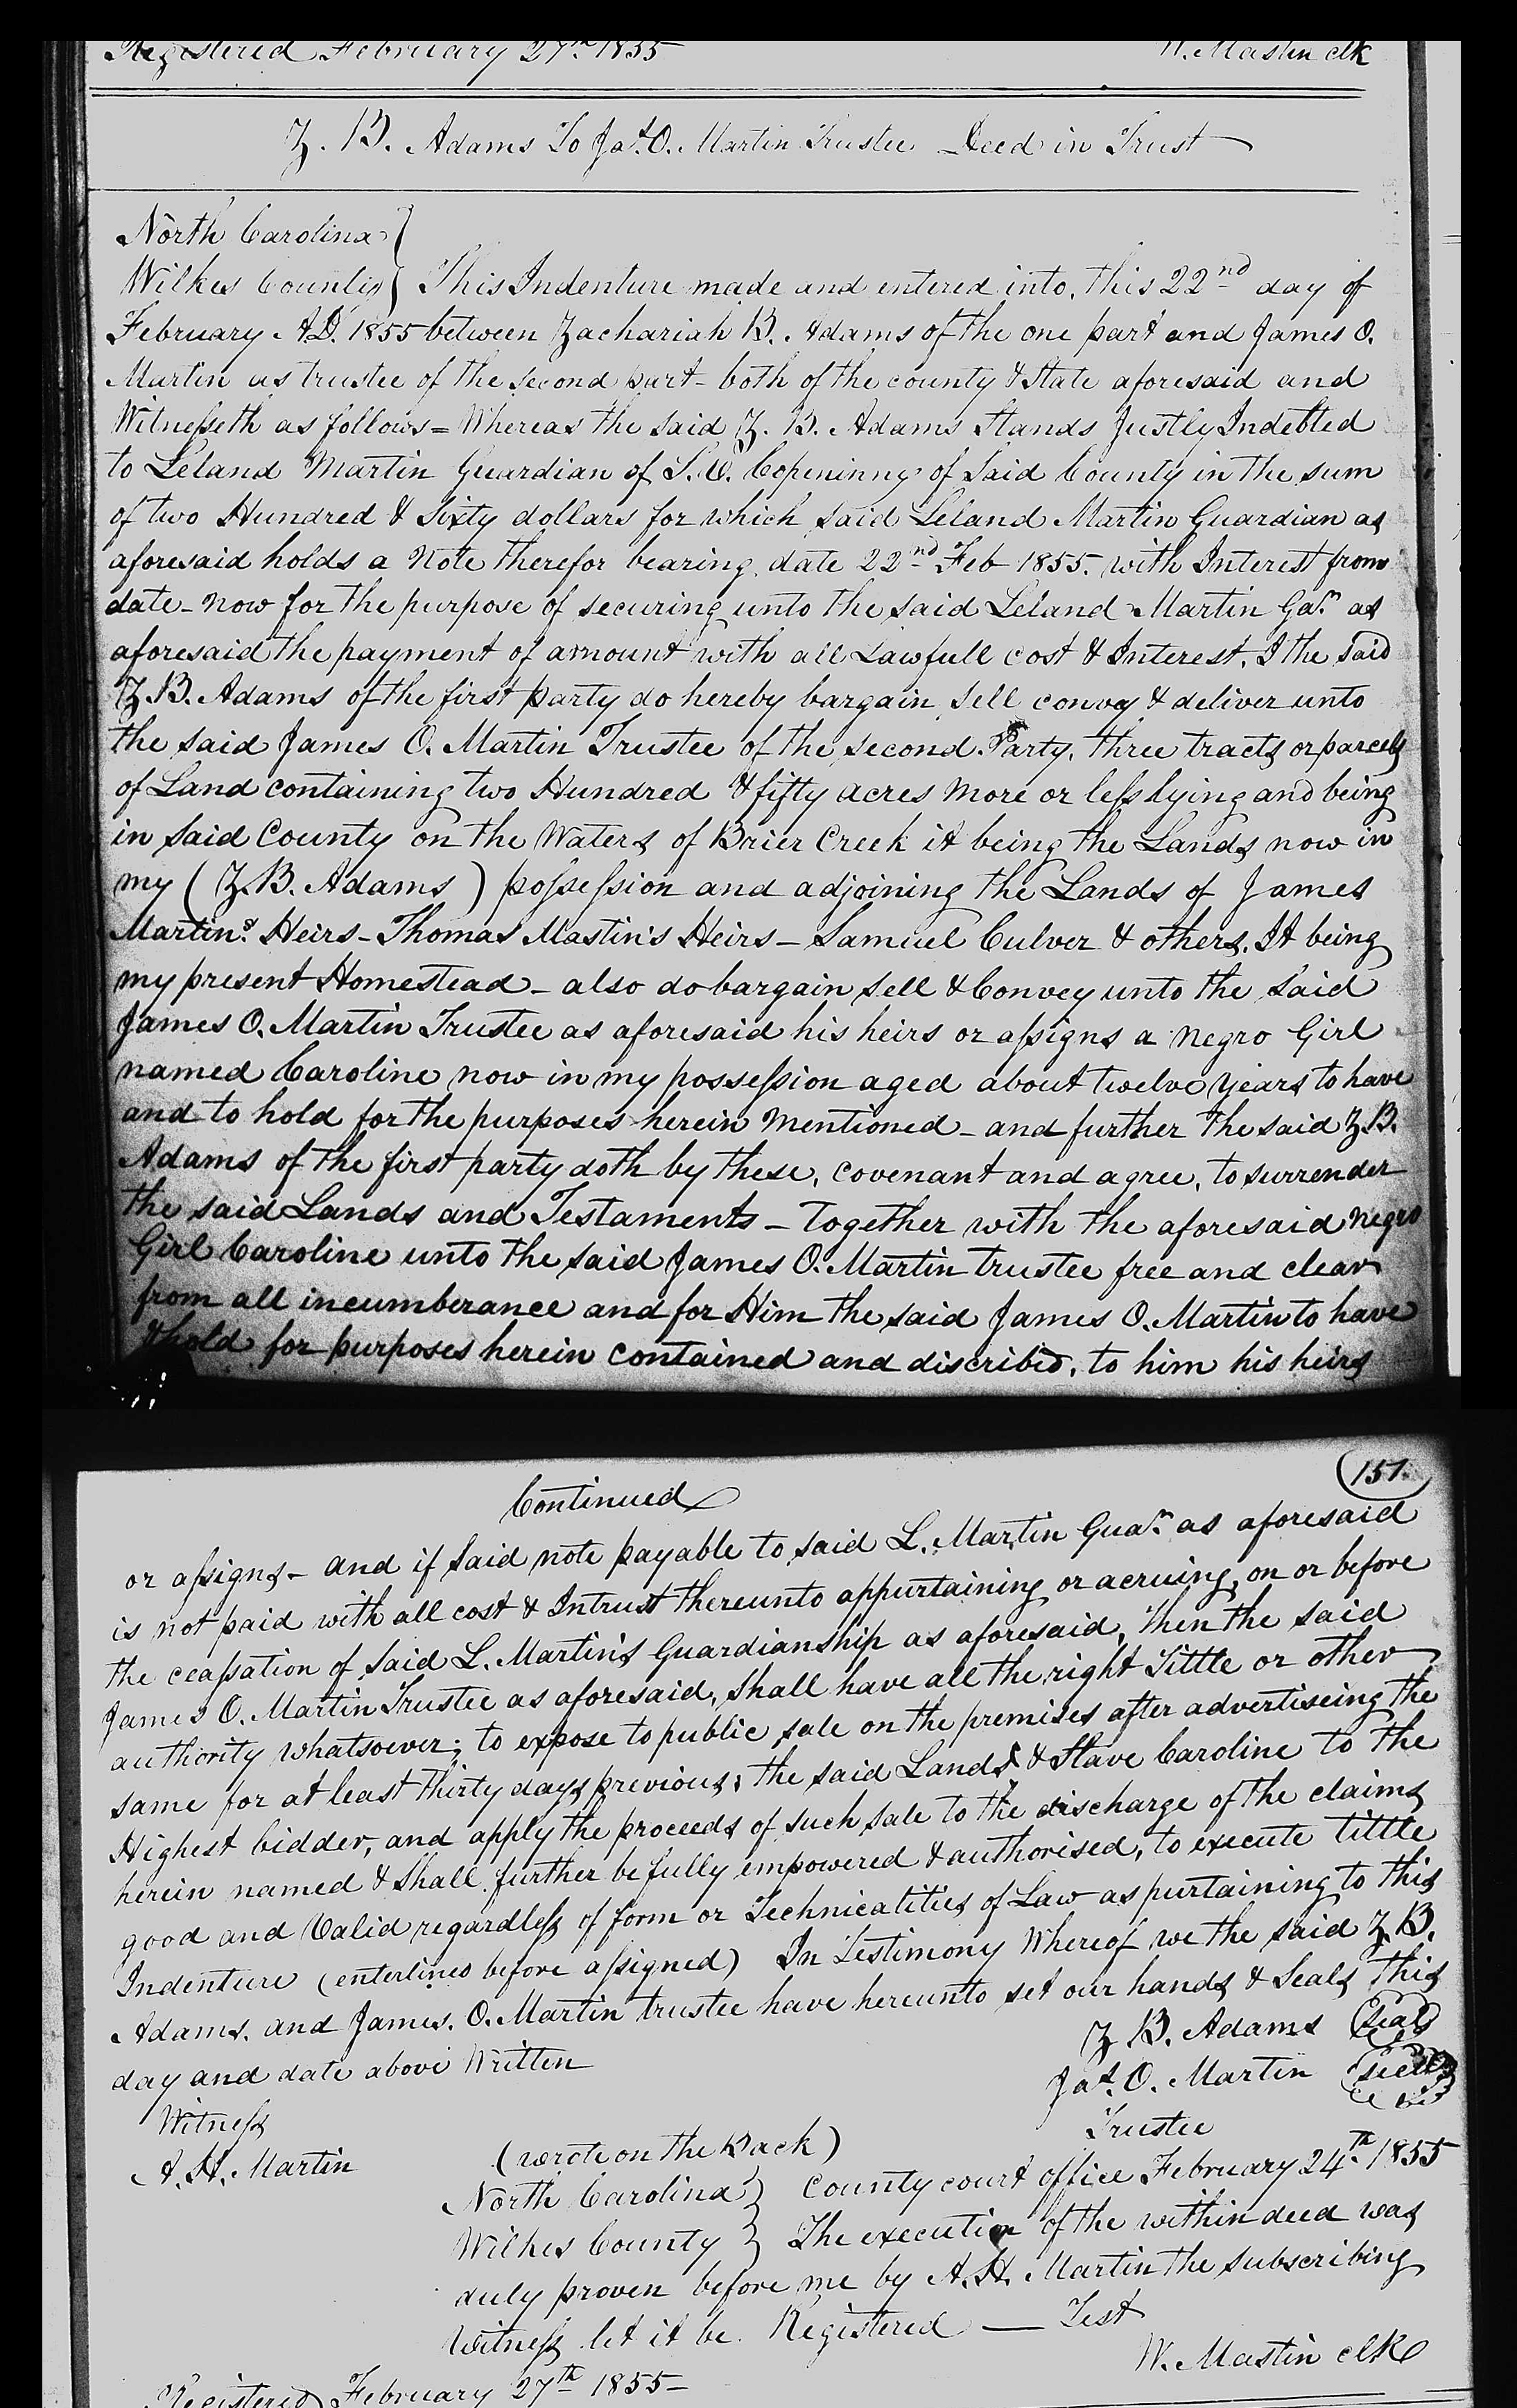 Registered February 27th 1855 W. Mastin clk
Z. B. Adams To Jas. O. Martin Trustee Deed in Trust
North Carolina }
Wilkes County } This Indenture made and entered into, this 22nd day of
February A.D. 1855 between Zachariah B. Adams of the one part and James O.
Martin as trustee of the second part - both of the county & State aforesaid and
Witnesseth as follows = Whereas the said Z. B. Adams Stands Justly Indebted
to Leland Martin Guardian of S. V. Copeninny of Said County in the sum
of two Hundred & Sixty dollars for which said Leland Martin Guardian as
aforesaid holds a Note therefor bearing date 22nd Feb 1855. with Interest from
date - now for the purpose of securing unto the said Leland Martin Gan. as
aforesaid the payment of amount with all Lawfull cost & Interest. I the said
Z. B. Adams of the first party do hereby bargain sell convey & deliver unto
the said James O. Martin Trustee of the second Party, three tracts or parcels
of Land containing two Hundred & fifty acres more or less lying and being
in said County on the Waters of Brier Creek it being the Lands now in
my ( Z. B. Adams ) possession and adjoining the Lands of James
Martins. Heirs - Thomas Mastin's Heirs - Samuel Culver & others. It being
my present Homestead - also do bargain sell & Convey unto the said
James O. Martin Trustee as aforesaid his heirs or assigns a Negro Girl
named Caroline now in my possession aged about twelve years to have
and to hold for the purposes herein mentioned - and further the said Z. B.
Adams of the first party doth by these, covenant and agree, to surrender
the said Lands and Testaments - together with the aforesaid negro
Girl Caroline unto the said James O. Martin trustee free and clear
from all incumberance and for Him the said James O. Martin to have
& hold for purposes herein contained and discribed, to him his heirs
151
Continued
or assigns - and if said note payable to said L. Martin Guan. as aforesaid
is not paid with all cost & Intrust thereunto appurtaining or acruing, on or before
the ceassation of said L. Martin's Guardianship as aforesaid, then the said
James O. Martin Trustee as aforesaid, shall have all the right Tittle or other
authority whatsoever; to expose to public sale on the premises after advertiseing the
same for at least thirty days previous, the said Lands & Slave Caroline to the
Highest bidder, and apply the proceeds of such sale to the discharge of the claims
herein named & shall further be fully empowered & authorised, to execute tittle
good and Valid regardless of form or Technicalities of Law as purtaining to this
Indenture (enterlined before assigned) In Testimony Whereof we the said Z. B.
Adams. and James. O. Martin trustee have hereunto set our hands & Seals this
day and date above Written
Z B. Adams (Seal)
Jas. O. Martin (Seal)
Trustee
Witness
A. H. Martin
(wrote on the Back)
North Carolina } County court office February 24th 1855
Wilkes County } The execution of the within deed was
duly proven before me by A. H. Martin the subscribing
Witness let it be Registered — Test
W. Mastin clk
Registered February 27th 1855 -